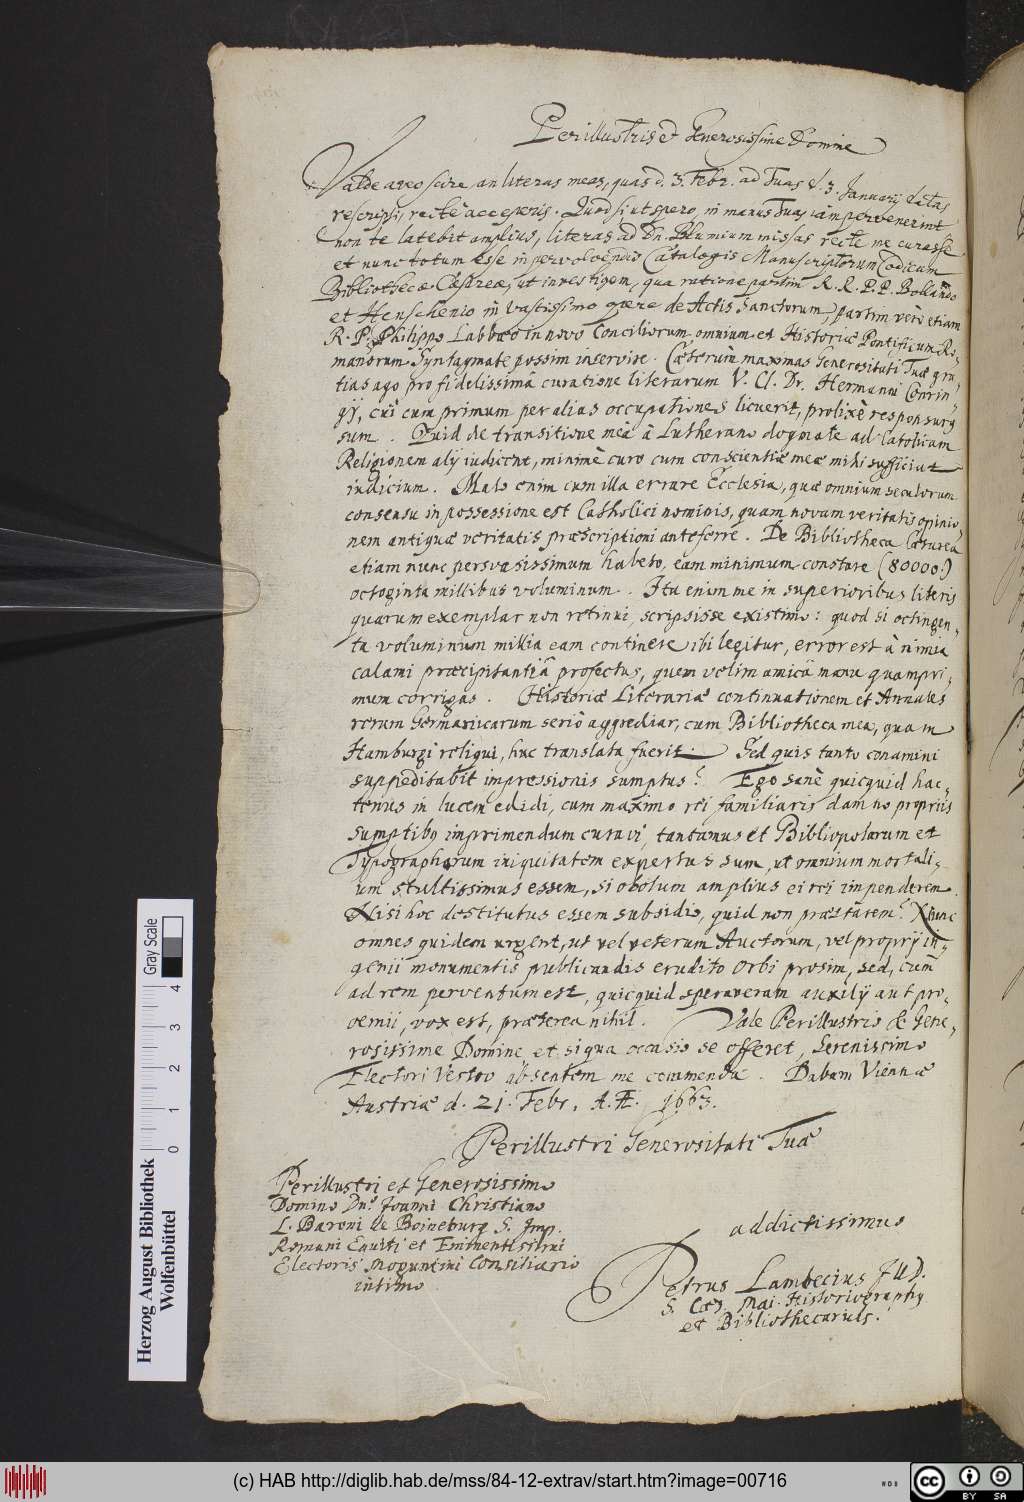 Perillustris et Generosissime Domine
Valde aveo scire an literas meas, quas d. 3. Febr. ad Tuas d. 3. Januarij datas
rescripsi, rectè acceperis. Quod si ut spero, in manus Tuas iam pervenerint
non te latebit amplius, literas ad Dn. Blumium missas recte me curasse
et nunc totum esse in pervolvendis Catalogis Manuscriptorum Codicum
Bibliothecæ Cæsareæ, ut investigem, qua ratione partim R. R. P. P. Bollando
et Henschenio in vastissimo opere de Actis Sanctorum, partim verò etiam
R. P. Philippo Labbæo in novo Conciliorum omnium et Historiæ Pontificum Ro-
manorum Syntagmate possim inservire. Cæterùm maximas Generositati Tuæ gra-
tias ago pro fidelissimâ curatione literarum V. Cl. Dr. Hermanni Conrin-
gij, cui cum primum per alias occupationes licuerit, prolixè responsurus
sum. Quid de transitione meâ à Lutherano dogmate ad Catolicam
Religionem alij iudicent, minimè curo cum conscientiæ meæ mihi sufficiat
iudicium. Malo enim cum illa errare Ecclesia, quæ omnium seculorum
consensu in possessione est Catholici nominis, quam novam veritatis opinio-
nem antiquæ veritatis præscriptioni anteferre. De Bibliotheca Cæsarea
etiam nunc persvasissimum habeto, eam minimum constare (80000.)
octoginta millibus voluminum. Ita enim me in superioribus literis
quarum exemplar non retinui, scripsisse existimo: quod si octingen-
ta voluminum millia eam continere ibi legitur, error est à nimia
calami præcipitantiâ profectus, quem velim amicâ manu quampri-
mum corrigas. Historiæ Literariæ continuationem et Annales
rerum Germanicarum seriò aggrediar, cum Bibliotheca mea, quam
Hamburgi reliqui, huc translata fuerit. Sed quis tanto conamini
suppeditabit impressionis sumptus? Ego sanè quicquid hac-
tenus in lucem edidi, cum maximo rei familiaris damno propriis
sumptibus imprimendum curavi, tantamus et Bibliopolarum et
Typographorum iniquitatem expertus sum, ut omnium mortali-
um stultissimus essem, si obolum amplius ei rei impenderem.
Nisi hoc destitutus essem subsidio, quid non præstarem? Nunc
omnes quidem urgent, ut vel veterum Auctorum, vel proprij in-
genii monumentis publicandis erudito Orbi prosim, sed, cùm
ad rem perventum est, quicquid speraveram auxilij aut pro-
oemii, vox est, præterea nihil. Vale Perillustris & Gene-
rosissime Domine et si qua occasio se offeret, Serenissimo
Electori Vestro absentem me commenda. Dabam Viennæ
Austriæ d. 21. Febr. A. Æ. 1663.
Perillustri Generositati Tuæ
Perillustri et Generosissimo
Domino Dno. Joanni Christiano
L. Baroni de Boineburg S. Imp.
Romani Equiti et Eminentissimi
Electoris Moguntini Consiliario
intimo
addictissimus
Petrus Lambecius JUD.
S. Cæs. Mai. Historiography
et Bibliothecarius.
Herzog August Bibliothek
Wolfenbüttel
Gray Scale
0 1 2 3 4
(c) HAB http://diglib.hab.de/mss/84-12-extrav/start.htm?image=00716
cc BY SA